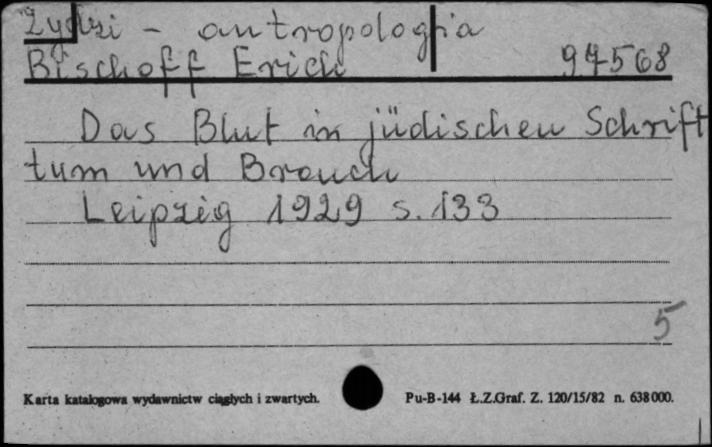 Żydzi - antropologia
Bischoff Erich 97568
Das Blut in jüdischen Schrift
tum und Brauch
Leipzig 1929 s. 133
5
Karta katalogowa wydawnictw ciągłych i zwartych. Pu-B-144 Ł.Z.Graf. Z. 120/15/82 n. 638000.